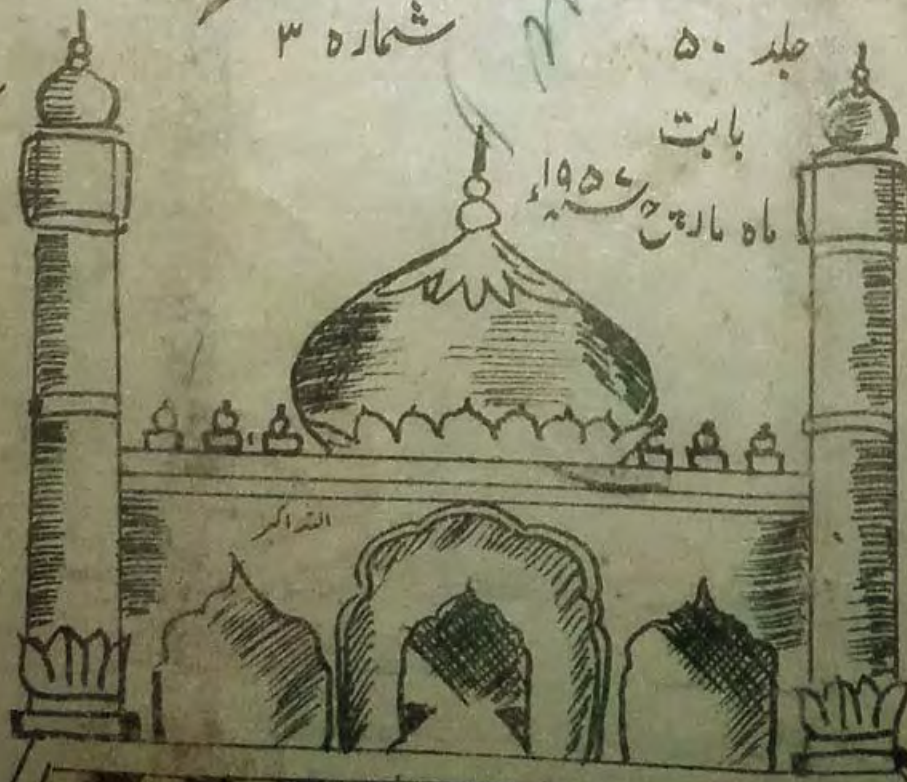 جلد ۵۰ شمارہ ۳
بابت
ماہ مارچ سنہ ۱۹۵۷ء
اللہ اکبر